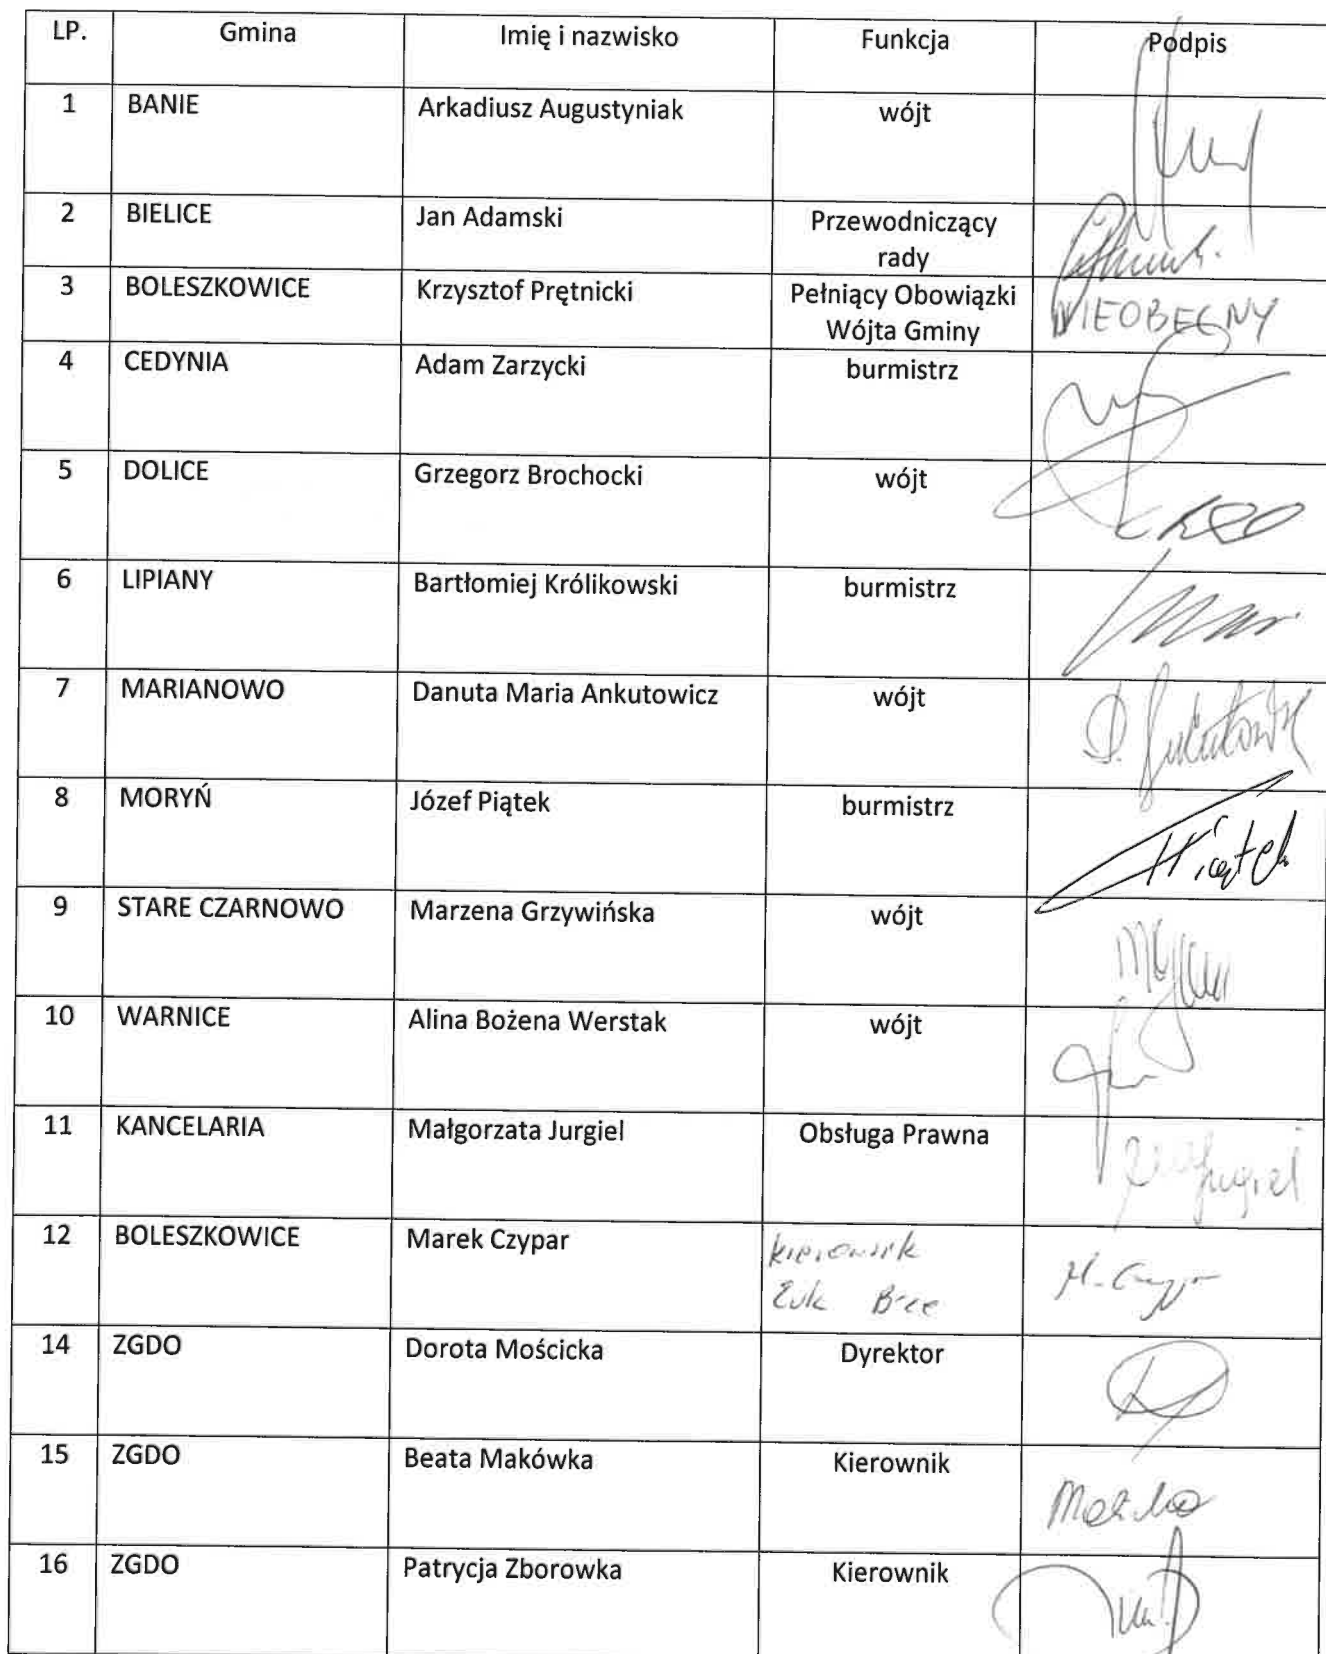 LP. Gmina Imię i nazwisko Funkcja Podpis
1 BANIE Arkadiusz Augustyniak wójt
2 BIELICE Jan Adamski Przewodniczący
rady
3 BOLESZKOWICE Krzysztof Prętnicki Pełniący Obowiązki NIEOBECNY
Wójta Gminy
4 CEDYNIA Adam Zarzycki burmistrz
5 DOLICE Grzegorz Brochocki wójt
6 LIPIANY Bartłomiej Królikowski burmistrz
7 MARIANOWO Danuta Maria Ankutowicz wójt
8 MORYŃ Józef Piątek burmistrz
9 STARE CZARNOWO Marzena Grzywińska wójt
10 WARNICE Alina Bożena Werstak wójt
11 KANCELARIA Małgorzata Jurgiel Obsługa Prawna
12 BOLESZKOWICE Marek Czypar kierownik
14 ZGDO Dorota Mościcka Dyrektor
15 ZGDO Beata Makówka Kierownik
16 ZGDO Patrycja Zborowka Kierownik